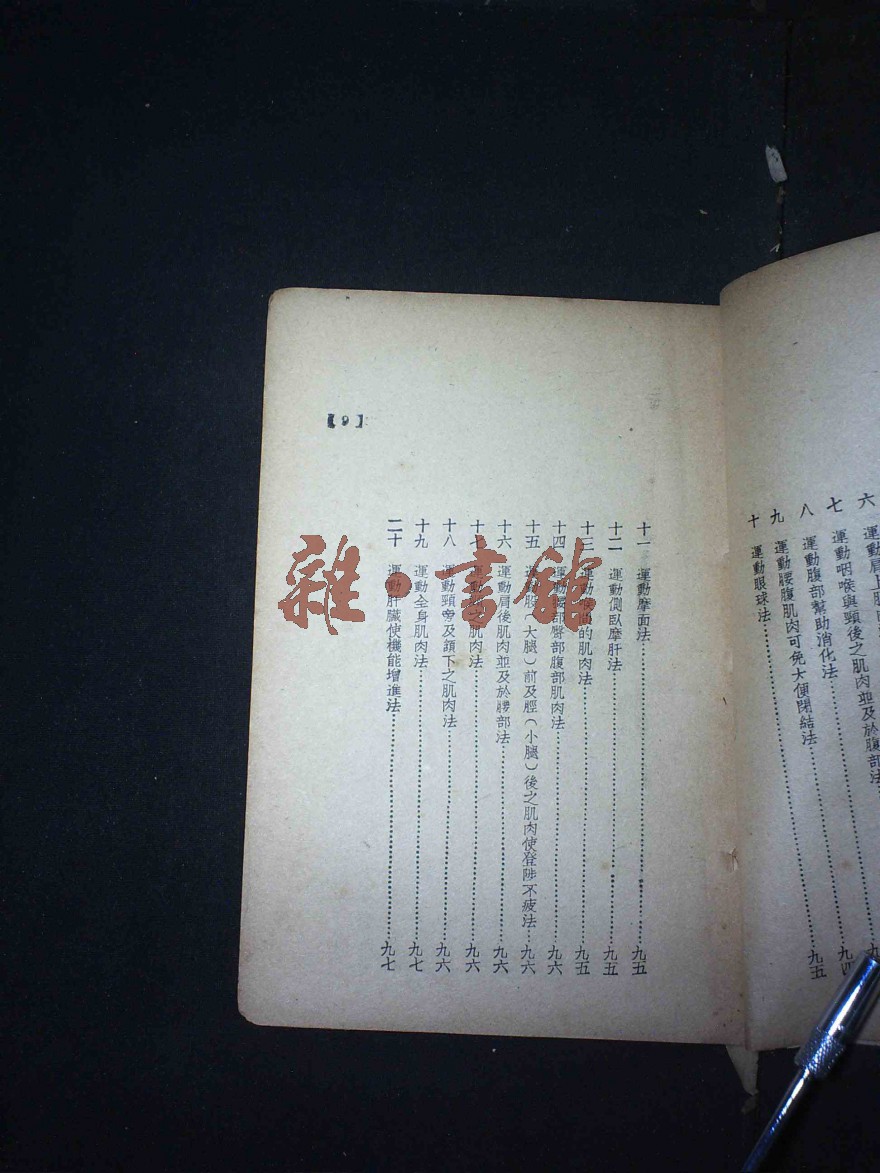 六 運動肩上肌肉
七 運動咽喉與頸後之肌肉並及於腹部法
八 運動腹部幫助消化法
九 運動腰腹肌肉可免大便閉結法
十 運動眼球法
九四
九五
十一 運動摩面法 九五
十二 運動側臥摩肝法 九五
十三 運動 的肌肉法 九五
十四 運動 部臀部腹部肌肉法 九六
十五 運 股(大腿)前及脛(小腿)後之肌肉使登陟不疲法 九六
十六 運動肩後肌肉並及於腰部法 九六
十七 運動 之肌肉法 九六
十八 運動頸旁及頷下之肌肉法 九六
十九 運動全身肌肉法 九七
二十 運動肝臟使機能增進法 九七
【9】
雜·書館